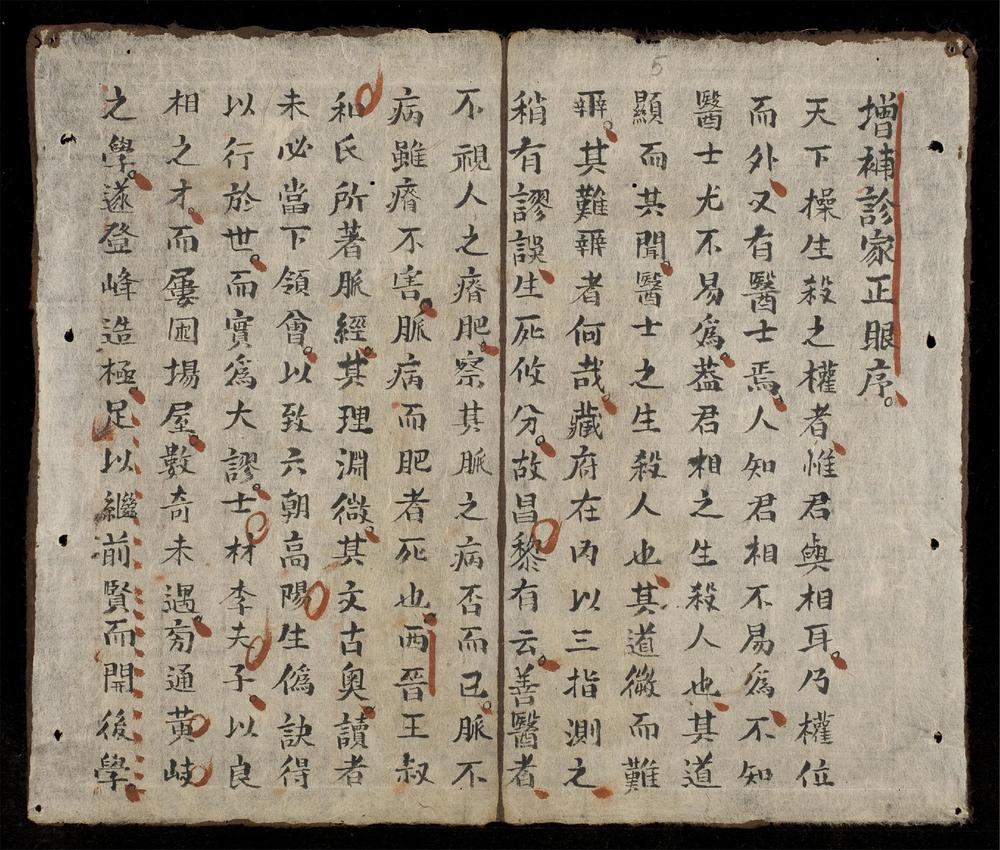 增補診家正眼序
天下操生殺之權者惟君與相耳乃權位
而外又有醫士焉人知君相不易爲不知
醫士尤不易爲葢君相之生殺人也其道
顯而其聞醫士之生殺人也其道微而難
辨其難辨者何哉藏府在內以三指測之
稍有謬誤生死攸分故昌黎有云善醫者
不視人之瘠肥察其脈之病否而已脈不
病雖瘠不害脈病而肥者死也西晉王叔
和氏所著脈經其理淵微其文古奧讀者
未必當下領會以致六朝高陽生僞訣得
以行於世而實爲大謬士材李夫子以良
相之才而屢困場屋數奇未遇旁通黄岐
之學遂登峰造極足以繼前賢而開後學
5